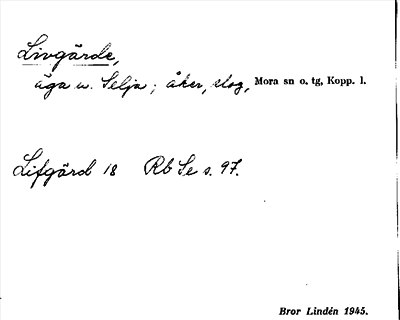 Livgärde,
äga u. Selja; åker, skog, Mora sn o. tg, Kopp. l.
Lifgärd 18 Rb Se s. 97.
Bror Lindén 1945.